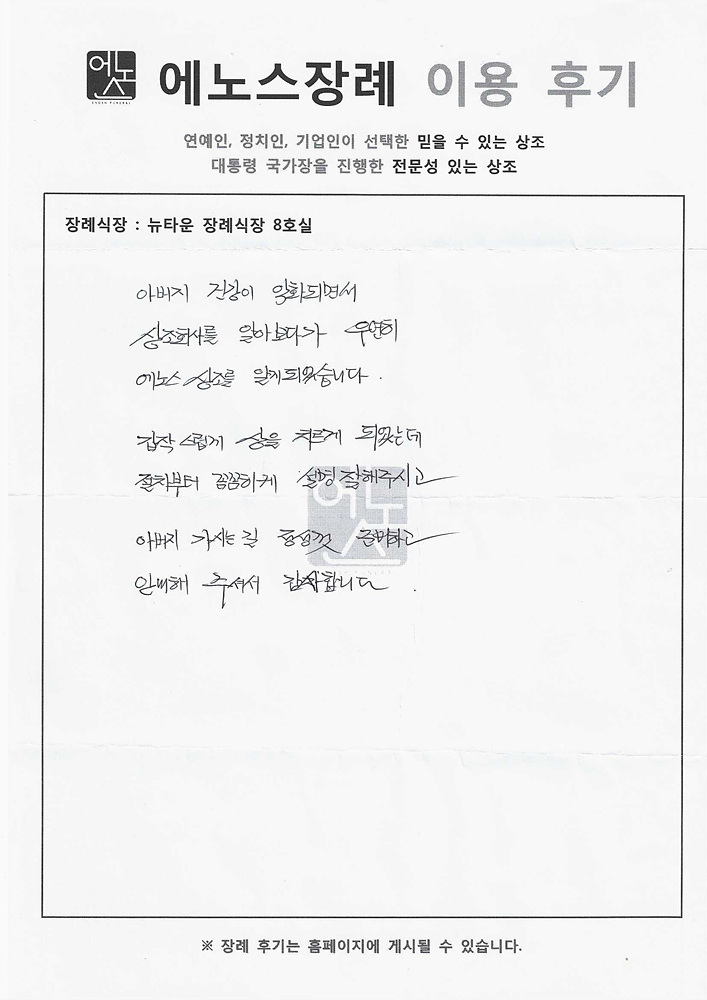 에노스
ENOSH FUNERAL
에노스장례 이용 후기
연예인, 정치인, 기업인이 선택한 믿을 수 있는 상조
대통령 국가장을 진행한 전문성 있는 상조
장례식장 : 뉴타운 장례식장 8호실
아버지 건강이 악화되면서
상조회사를 알아보다가 우연히
에노스 상조를 알게되었습니다.
갑작스럽게 상을 치르게 되었는데
절차부터 꼼꼼하게 설명 잘해주시고
에노스
아버지 가시는 길 정성껏 준비하고
안내해 주셔서 감사합니다.
※ 장례 후기는 홈페이지에 게시될 수 있습니다.